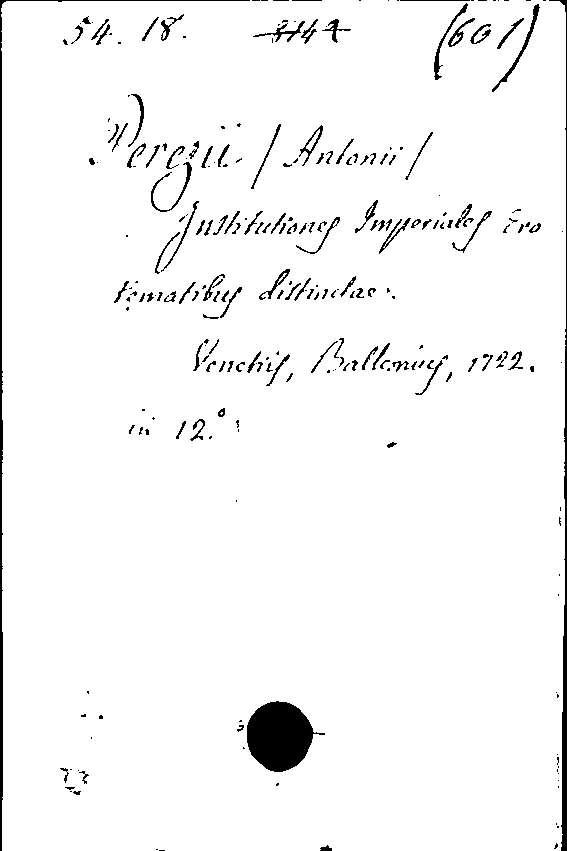 54. 18. 3142 (601)
Perezii / Antonii /
Institutiones Imperiales Ero
tematibus distinctae.
Venetiis, Ballonius, 1722.
in 12.°